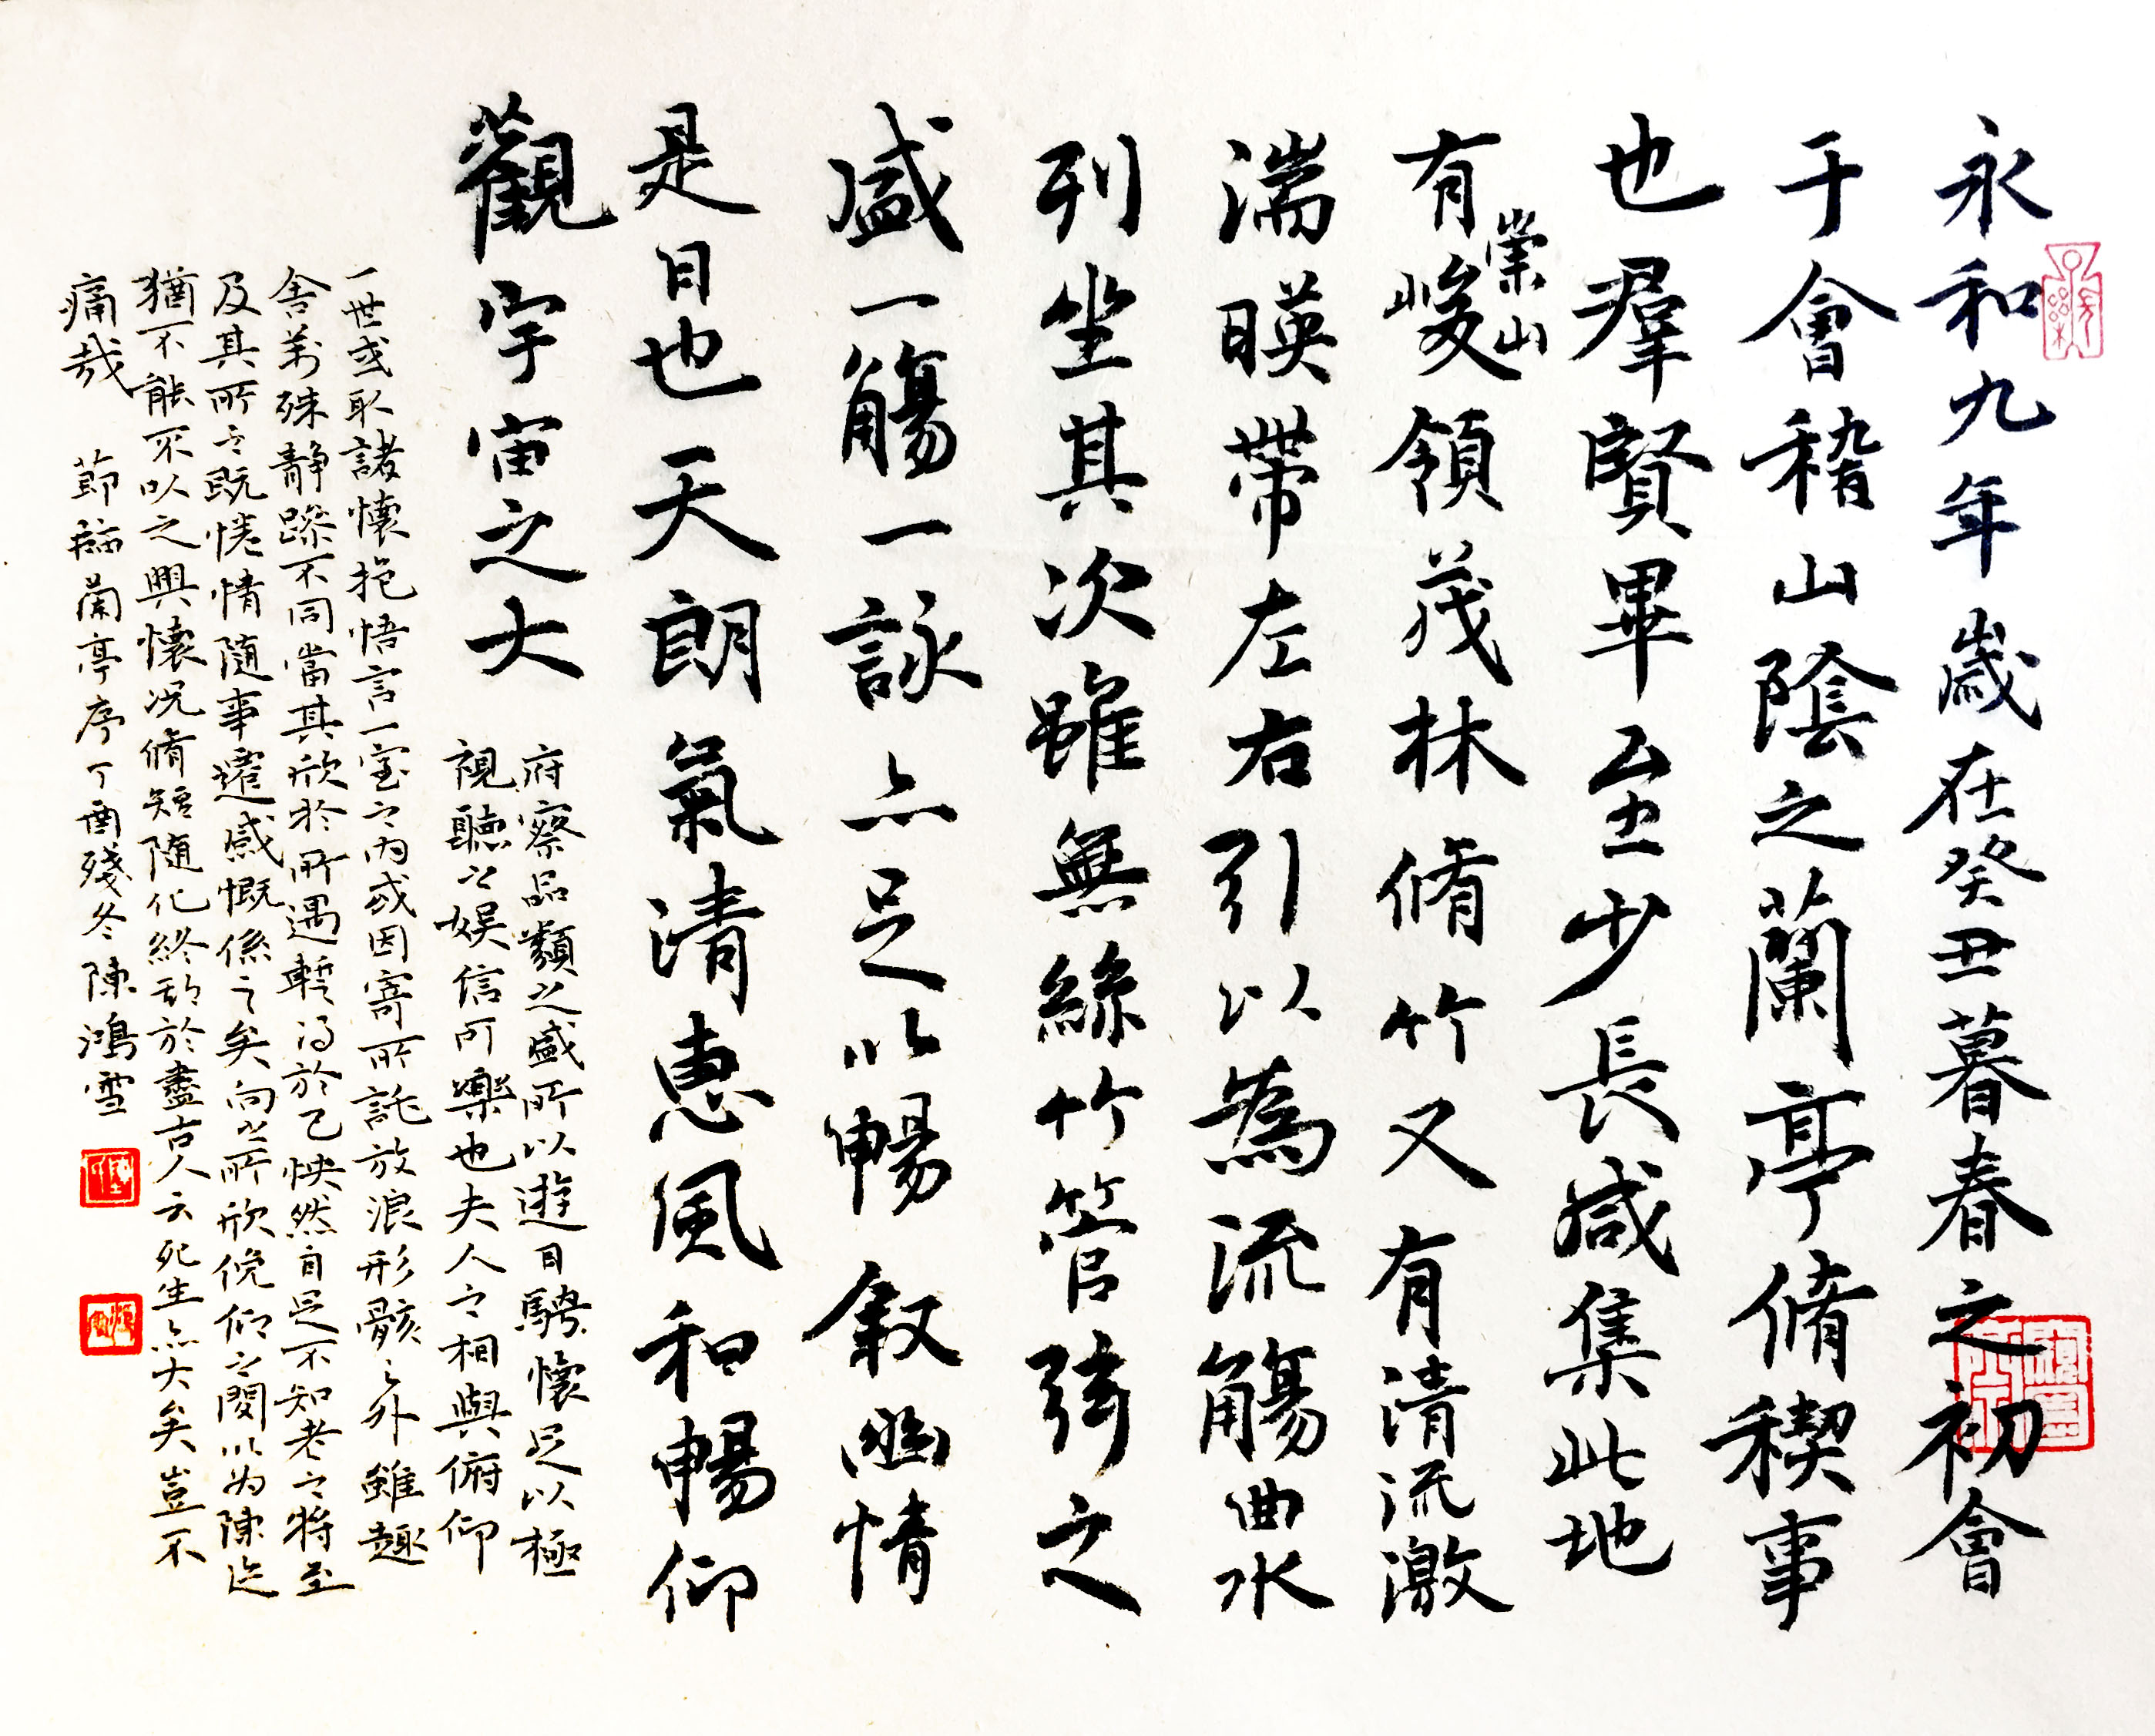 永和九年歲在癸丑暮春之初會
于會稽山陰之蘭亭脩稧事
也羣賢畢至少長咸集此地
有崇山峻領茂林脩竹又有清流激
湍暎帶左右引以為流觴曲水
列坐其次雖無絲竹管弦之
盛一觴一詠亦足以暢敘幽情
是日也天朗氣清惠風和暢仰
觀宇宙之大
府察品類之盛所以遊目騁懷足以極
視聽之娛信可樂也夫人之相與俯仰
一世或取諸懷抱悟言一室之內或因寄所託放浪形骸之外雖趣
舍萬殊靜躁不同當其欣於所遇暫得於己怏然自足不知老之將至
及其所之既惓情隨事遷感慨係之矣向之所欣俛仰之閒以為陳迹
猶不能不以之興懷況脩短隨化終期於盡古人云死生亦大矣豈不
痛哉 節臨蘭亭序丁酉殘冬陳鴻雪